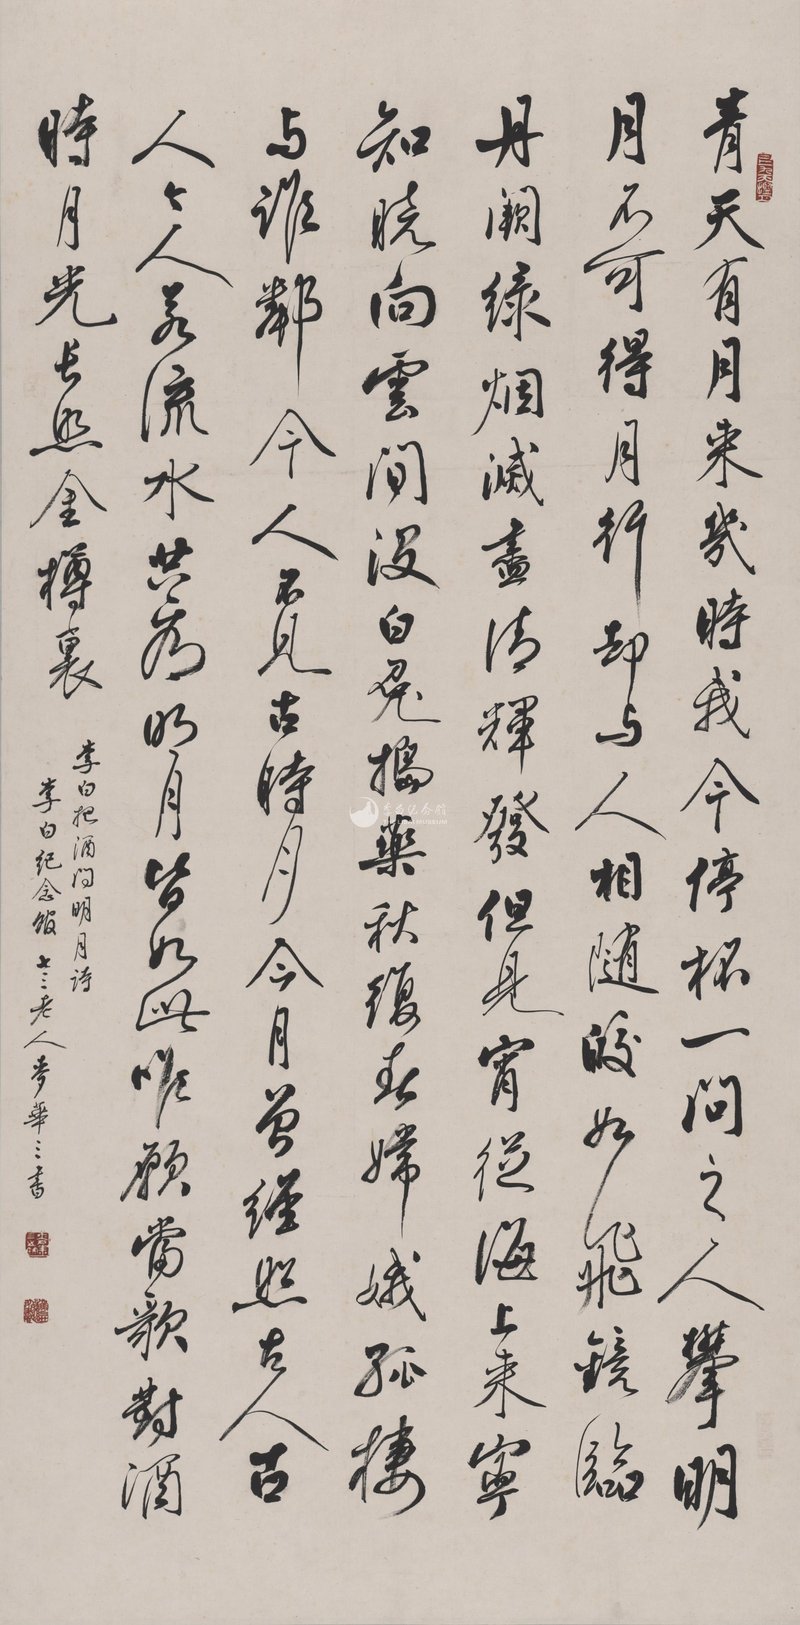 青天有月来幾時我今停杯一問之人攀明
月不可得月行却与人相随皎如飛鏡臨
丹闕绿烟滅盡清輝發但見宵從海上来寧
知曉向雲間没白兔搗藥秋復春嫦娥孤棲
与誰鄰今人不見古時月今月曾經照古人古
人今人若流水共看明月皆如此唯願當歌對酒
時月光长照金樽裏
李白把酒问明月詩
李白纪念馆 七三老人麥華三書
李白纪念馆
LIBAI MUSEUM